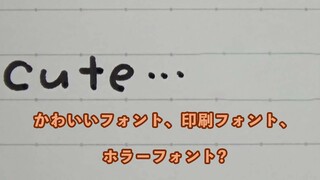 cute…
かわいいフォント、印刷フォント、
ホラーフォント?